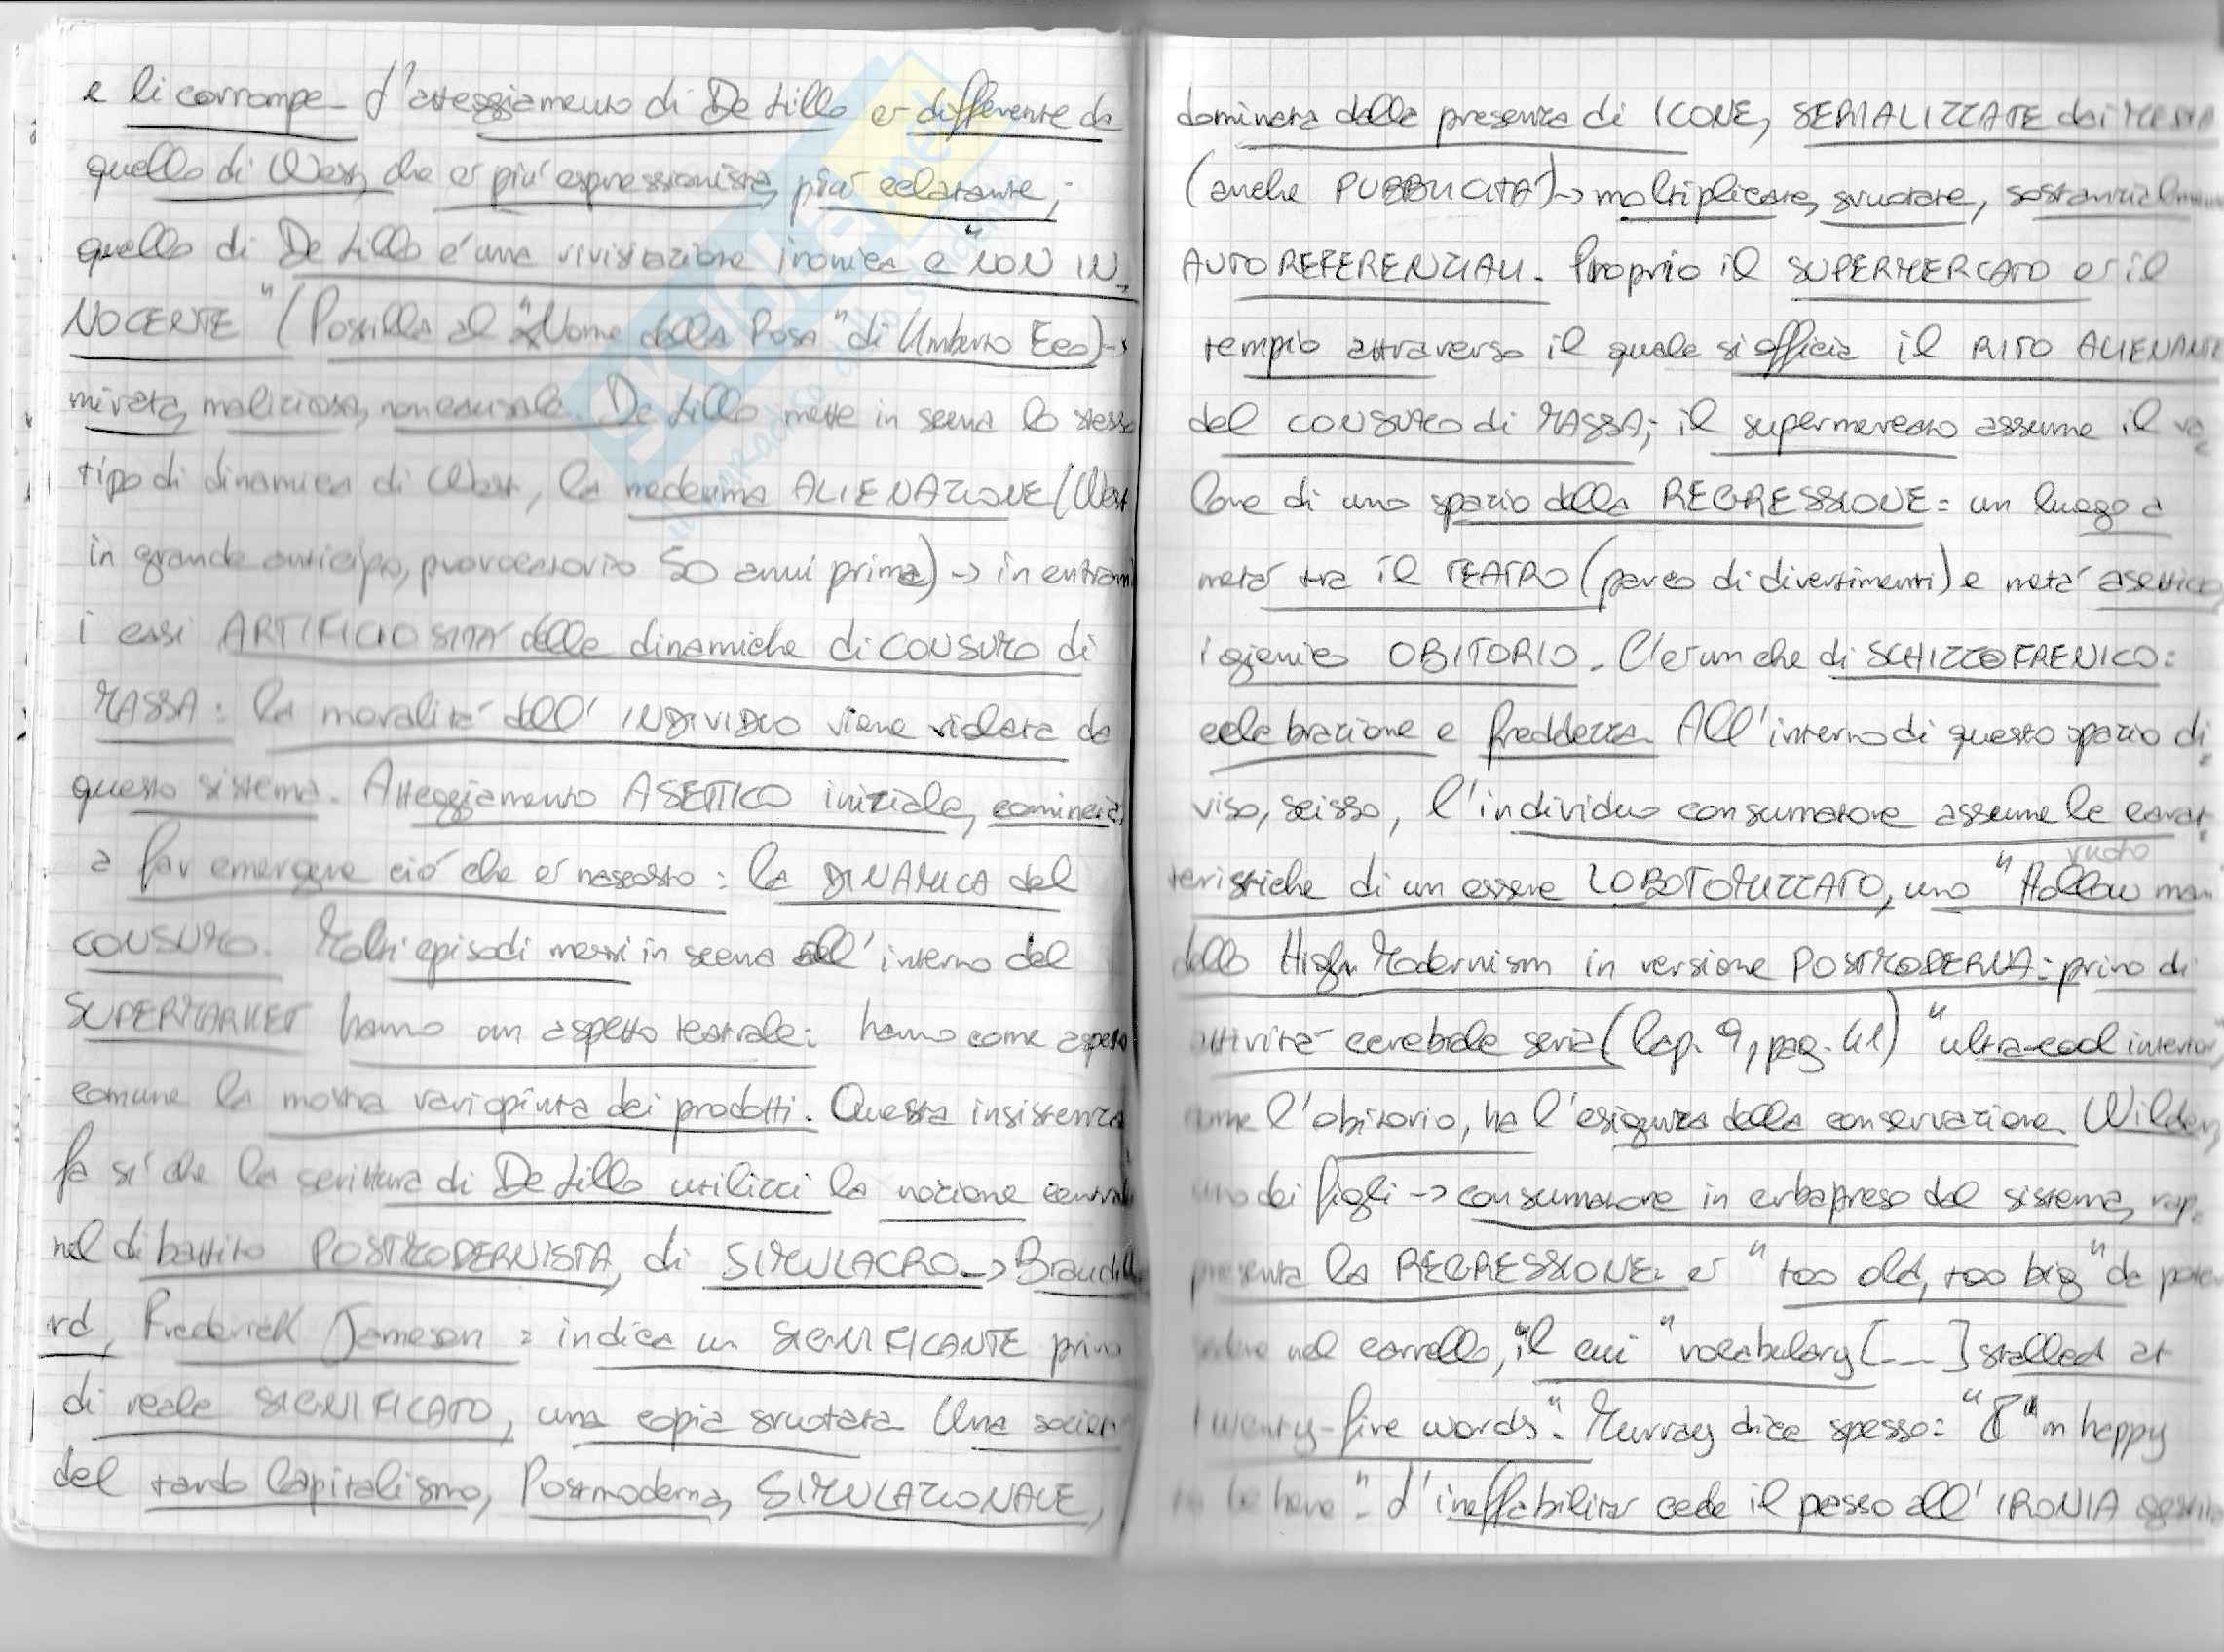 e li corrompe. L'atteggiamento di De Lillo è differente da
quello di West, che è più espressionista, più eclatante;
quello di De Lillo è una rivisitazione ironica e "NON IN
NOCENTE" (Postille al "Nome della Rosa" di Umberto Eco)->
mirata, maliziosa, non casuale. De Lillo mette in scena lo stesso
tipo di dinamica di West, la medesima ALIENAZIONE (West
in grande anticipo, provocatorio 50 anni prima) -> in entram
i casi ARTIFICIOSITÀ delle dinamiche di CONSUMO di
MASSA: la moralità dell'INDIVIDUO viene violata da
questo sistema. Atteggiamento ASETTICO iniziale, comincia
a far emergere ciò che è nascosto: la DINAMICA del
CONSUMO. Molti episodi messi in scena all'interno del
SUPERMARKET hanno un aspetto teatrale: hanno come aspetto
comune la mostra variopinta dei prodotti. Questa insistenza
fa sì che la scrittura di De Lillo utilizzi la nozione centrale
nel dibattito POSTMODERNISTA, di SIMULACRO -> Braudilla
rd, Frederick Jameson = indica un SIGNIFICANTE privo
di reale SIGNIFICATO, una copia svuotata. Una società
del tardo Capitalismo, Postmoderna, SIMULAZIONALE,
dominata dalla presenza di ICONE, SERIALIZZATE dai MEDIA
(anche PUBBLICITÀ) -> moltiplicate, svuotate, sostanzialmente
AUTOREFERENZIALI. Proprio il SUPERMERCATO è il
tempio attraverso il quale si officia il RITO ALIENANTE
del CONSUMO di MASSA; il supermercato assume il va
lore di uno spazio della REGRESSIONE = un luogo a
metà tra il TEATRO (parco di divertimenti) e metà asettico,
igienico OBITORIO. C'è un che di SCHIZZOFRENICO:
celebrazione e freddezza. All'interno di questo spazio di
viso, scisso, l'individuo consumatore assume le carat
vuoto
teristiche di un essere LOBOTOMIZZATO, uno "Hollow man
dello High Modernism in versione POSTMODERNA: privo di
attività cerebrale seria (Cap. 9, pag. 41) "ultra-cool interior",
come l'obitorio, ha l'esigenza della conservazione. Wilder,
uno dei figli -> consumatore in erba preso dal sistema, rap
presenta la REGRESSIONE: è "too old, too big" da poter
sedere nel carrello, il cui "vocabulary [---] stalled at
twenty-five words". Murray dice spesso: "I'm happy
to be here". L'ineffabilità cede il passo all'IRONIA